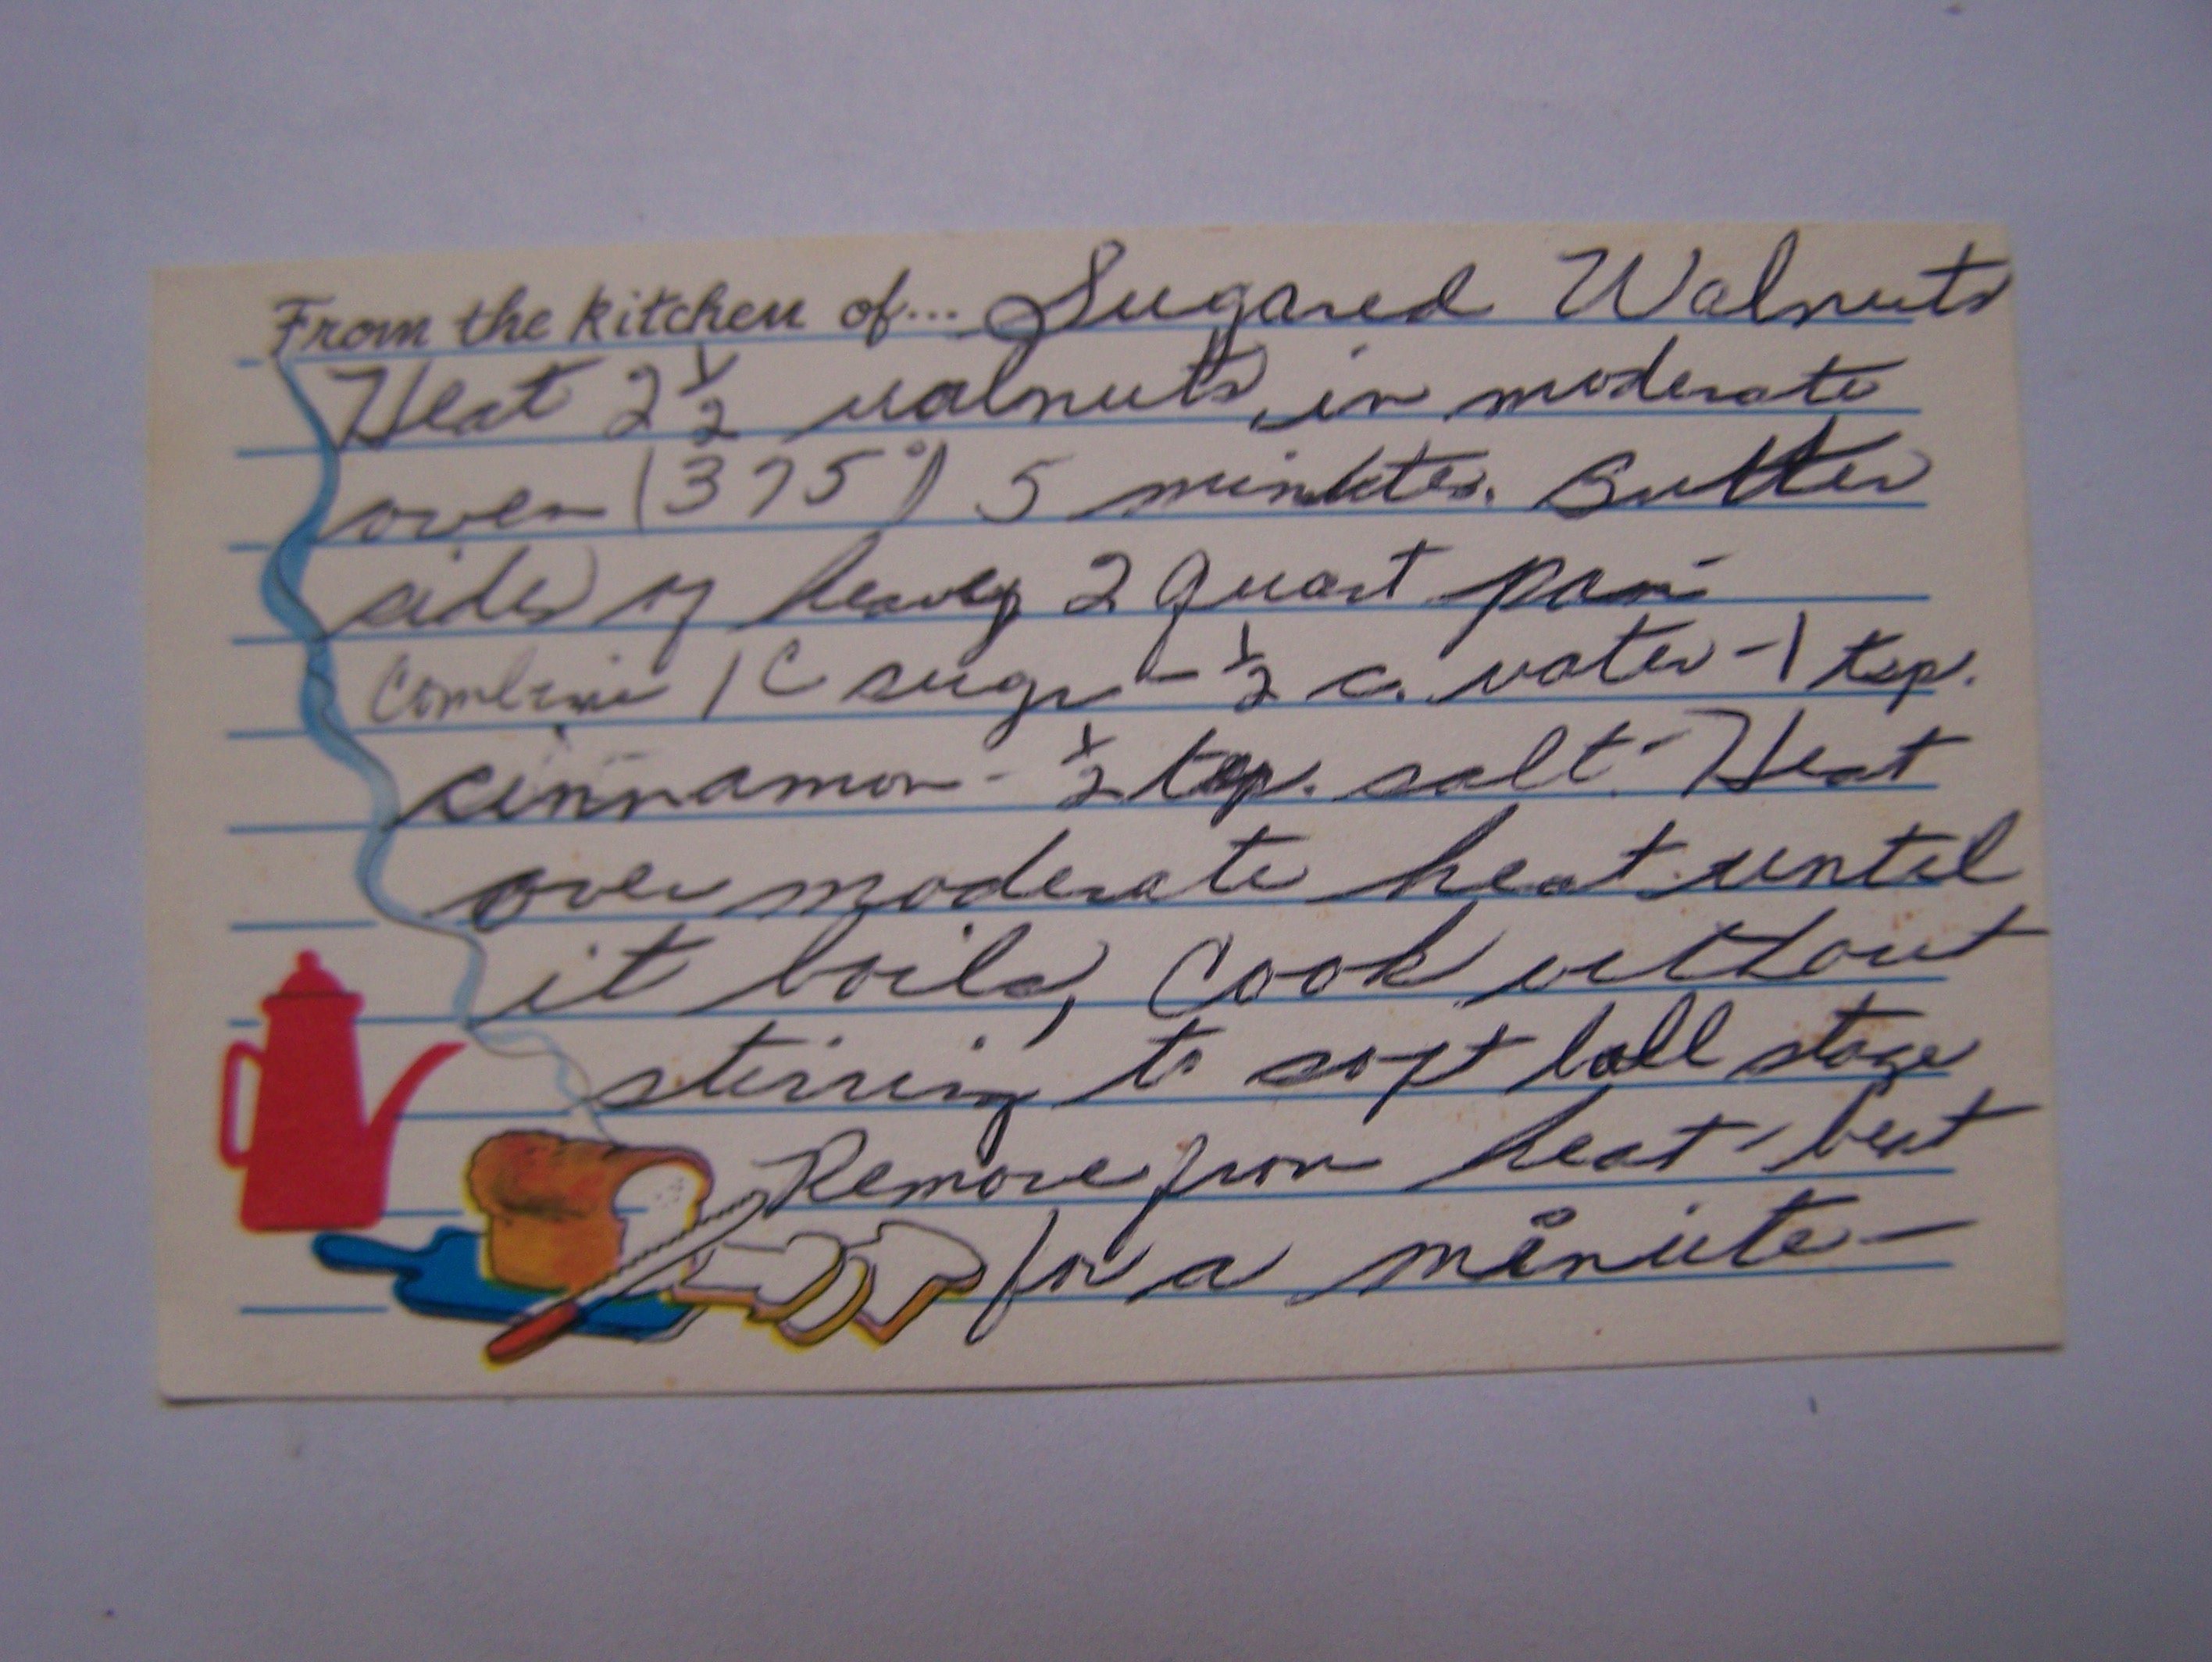 From the kitchen of... Sugared Walnuts
Heat 2 1/2 walnuts in moderate
oven (375°) 5 minutes. Butter
sides of heavy 2 quart pan -
Combine 1 C sugar - 1/2 c. water - 1 tsp.
cinnamon - 1/2 tsp. salt - Heat
over moderate heat until
it boils, Cook without
stirring to soft ball stage
Remove from heat - beat
for a minute -